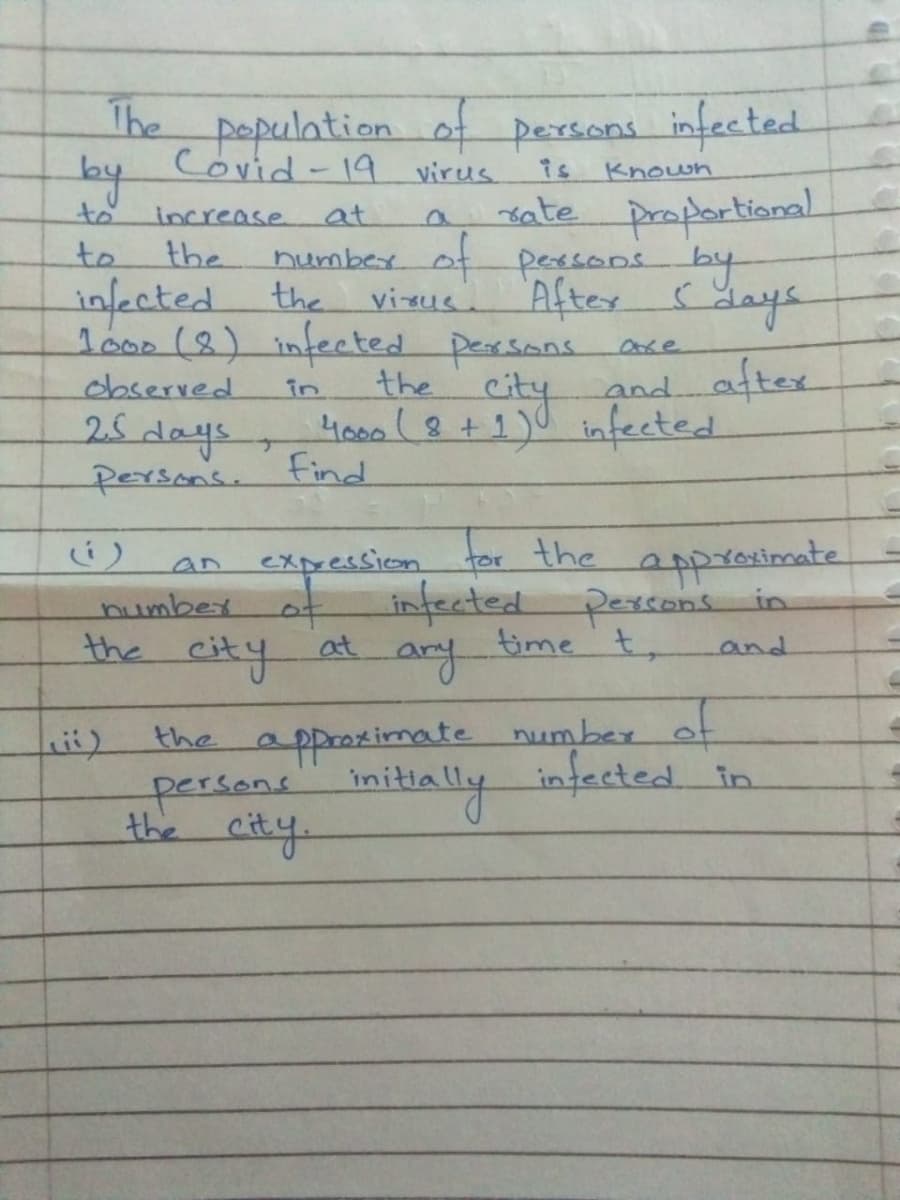 The population of persons infected
by Covid-19 virus is known
to increase at a rate proportional
to the number of persons by
infected the virus. After 5 days
1000 (8) infected persons are
observed in the city and after
25 days, 4000 (8+1) infected
persons. Find
(i) an expression for the approximate
number of infected persons in
the city at any time t, and
(ii) the approximate number of
persons initially infected in
the city.